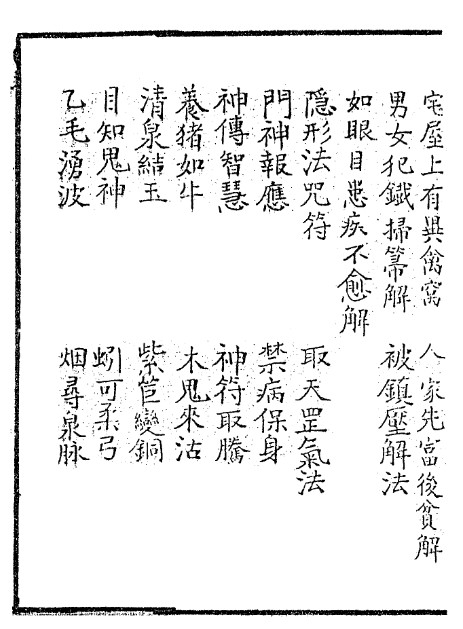 宅屋上有異禽窩 人家先富後貧解
男女犯鐵掃箒解 被鎮壓解法
如眼目患疾不愈解
隱形法咒符 取天罡氣法
門神報應 禁病保身
神傳智慧 神符取騰
養猪如牛 木鬼來沽
清泉結玉 紫笆變銅
目知鬼神 蚓可柔弓
乙毛湧波 烟尋泉脉